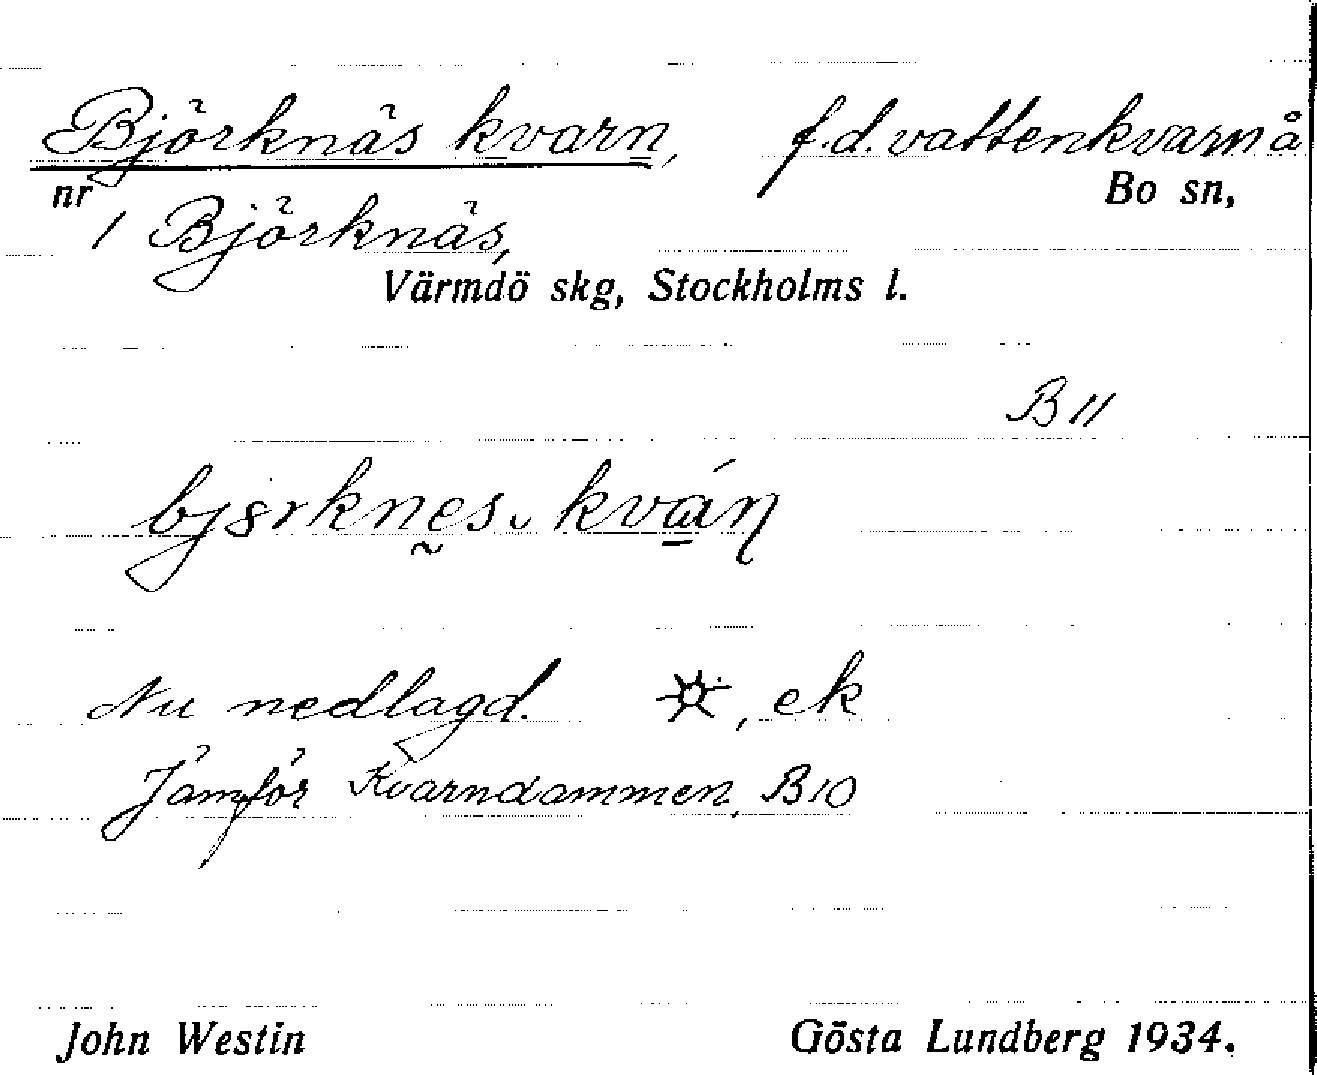 Björknäs kvarn, f.d. vattenkvarn å
nr Bo sn,
1 Björknäs,
Värmdö skg, Stockholms l.
B 11
Nu nedlagd. , ek
Jämför Kvarndammen, B 10
John Westin Gösta Lundberg 1934.